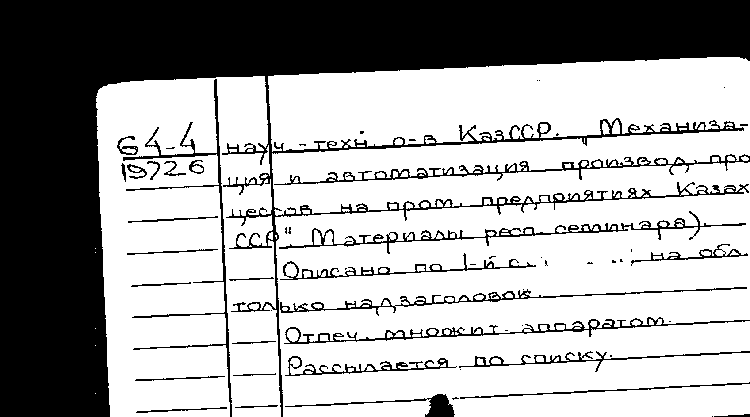 64-4 науч.-техн. о-в КазССР. „Механиза-
19726 ция и автоматизация производ. про
цессов на пром. предприятиях Казах
ССР". Материалы респ. семинара).
Описано по 1-й с. на обл.
только надзаголовок.
Отпеч. множит. аппаратом.
Рассылается по списку.